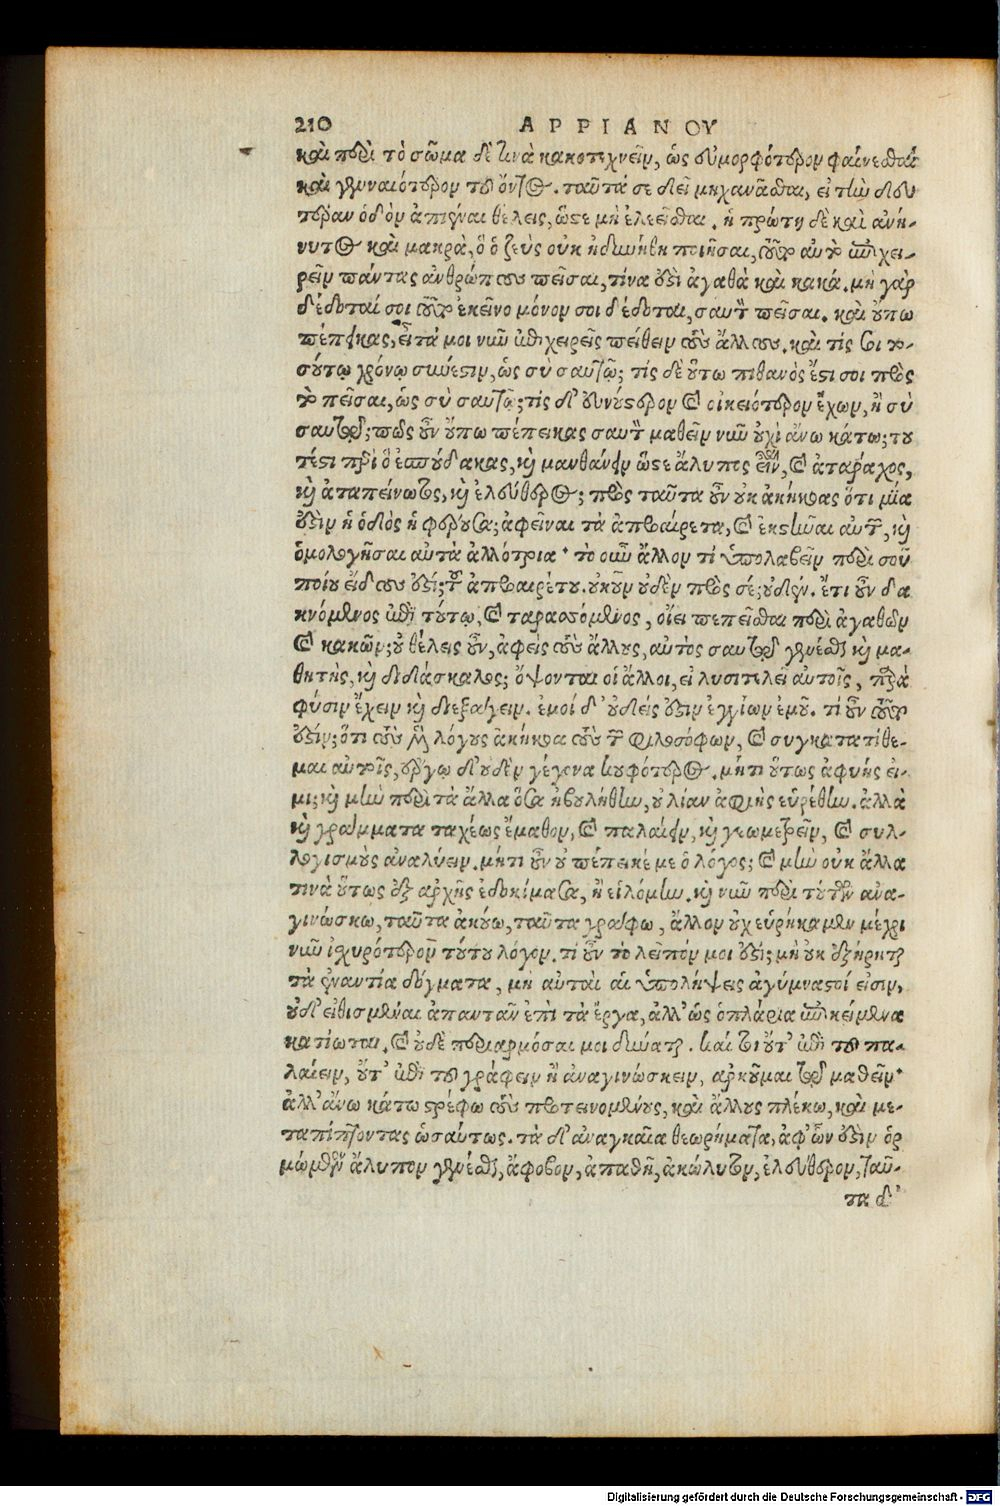 210 ΑΡΡΙΑΝΟΥ
καὶ περὶ τὸ σῶμα δέ τινα κακοτεχνεῖν, ὡς εὐμορφότερον φαίνεσθαι
καὶ γενναιότερον τοῦ ὄντος. ταῦτά σε δεῖ μηχανᾶσθαι, εἰ τὴν δευ
τέραν ὁδὸν ἀπιέναι θέλεις, ὥστε μὴ ἐλεεῖσθαι. ἡ πρώτη δὲ καὶ ἀνή-
νυτος καὶ μακρὰ, ὃ ὁ ζεὺς οὐκ ἠδυνήθη ποιῆσαι, τοῦτο αὐτὸ ἐπιχει-
ρεῖν πάντας ἀνθρώπους πεῖσαι, τίνα ἐστὶ ἀγαθὰ καὶ κακά. μὴ γὰρ
δέδοταί σοι τοῦτο ἐκεῖνο μόνον σοι δέδοται, σαυτὸν πεῖσαι. καὶ οὔπω
πέπεικας, εἶτά μοι νῦν ἐπιχειρεῖς πείθειν τοὺς ἄλλους. καὶ τίς σοι το-
σούτῳ χρόνῳ σύνεστιν, ὡς σὺ σαυτῷ; τίς δὲ οὕτω πιθανὸς ἔστι σοι πρὸς
τὸ πεῖσαι, ὡς σὺ σαυτῷ; τίς δ' εὐνούστερον καὶ οἰκειότερον ἔχων, ἢ σὺ
σαυτῷ; πῶς οὖν οὔπω πέπεικας σαυτὸν μαθεῖν νῦν οὐχὶ ἄνω κάτω; του
τέστι περὶ ὃ ἐσπούδακας, καὶ μανθάνειν ὥστε ἄλυπος εἶναι, καὶ ἀτάραχος,
καὶ ἀταπείνωτος, καὶ ἐλεύθερος; πρὸς ταῦτα οὖν οὐκ ἀκήκοας ὅτι μία
ἐστὶν ἡ ὁδὸς ἡ φέρουσα; ἀφεῖναι τὰ ἀπροαίρετα, καὶ ἐκστῆναι αὐτῶν, καὶ
ὁμολογῆσαι αὐτὰ ἀλλότρια· τὸ οὖν ἄλλον τι ὑπολαβεῖν περὶ σοῦ
ποίου εἴδους ἐστί; τῶν ἀπροαιρέτου. οὐκοῦν οὐδὲν πρὸς σέ; οὐδέν. ἔτι οὖν δα
κνόμενος ἐπὶ τούτῳ, καὶ ταρασσόμενος, οἴει πεπεῖσθαι περὶ ἀγαθῶν
καὶ κακῶν; οὐ θέλεις οὖν, ἀφεὶς τοὺς ἄλλους, αὐτὸς σαυτῷ γενέσθαι καὶ μα-
θητὴς, καὶ διδάσκαλος; ὄψονται οἱ ἄλλοι, εἰ λυσιτελεῖ αὐτοῖς, παρὰ
φύσιν ἔχειν καὶ διεξάγειν. ἐμοὶ δ' οὐδείς ἐστιν ἐγγίων ἐμοῦ. τί οὖν τοῦτο
ἐστίν; ὅτι τοὺς μὲν λόγους ἀκήκοα τοὺς τῶν φιλοσόφων, καὶ συγκατατίθε-
μαι αὐτοῖς, ἔργῳ δ' οὐδὲν γέγονα κουφότερος. μήτι οὕτως ἀφυής εἰ-
μι; καὶ μὴν περὶ τὰ ἄλλα ὅσα ἠβουλήθην, οὐ λίαν ἀφυὴς εὑρέθην. ἀλλὰ
καὶ γράμματα ταχέως ἔμαθον, καὶ παλαίειν, καὶ γεωμετρεῖν, καὶ συλ-
λογισμοὺς ἀναλύειν. μήτι οὖν οὐ πέπεικέ με ὁ λόγος; καὶ μὴν οὐκ ἄλλα
τινὰ οὕτως ἐξ ἀρχῆς ἐδοκίμασα, ἢ εἱλόμην. καὶ νῦν περὶ τούτων ἀνα-
γινώσκω, ταῦτα ἀκούω, ταῦτα γράφω, ἄλλον οὐχ εὑρήκαμεν μέχρι
νῦν ἰσχυρότερον τούτου λόγον. τί οὖν τὸ λεῖπόν μοι ἐστί; μὴ οὐκ ἐξῄρηται
τὰ ἐναντία δόγματα, μὴ αὐταὶ αἱ ὑπολήψεις ἀγύμναστοί εἰσιν,
οὐδ' εἰθισμέναι ἀπαντᾶν ἐπὶ τὰ ἔργα, ἀλλ' ὡς ὁπλάρια ἀποκείμενα
κατίωται. καὶ οὐδὲ περιαρμόσαι μοι δύναται. καί τοι οὔτ' ἐπὶ τοῦ πα-
λαίειν, οὔτ' ἐπὶ τοῦ γράφειν ἢ ἀναγινώσκειν, ἀρκοῦμαι τῷ μαθεῖν·
ἀλλ' ἄνω κάτω στρέφω τοὺς προτεινομένους, καὶ ἄλλους πλέκω, καὶ με-
ταπίπτοντας ὡσαύτως. τὰ δ' ἀναγκαῖα θεωρήματα, ἀφ' ὧν ἐστὶν ὁρ
μώμενον ἄλυπον γενέσθαι, ἄφοβον, ἀπαθῆ, ἀκώλυτον, ἐλεύθερον, ταῦ-
τα δ'
Digitalisierung gefördert durch die Deutsche Forschungsgemeinschaft - DFG